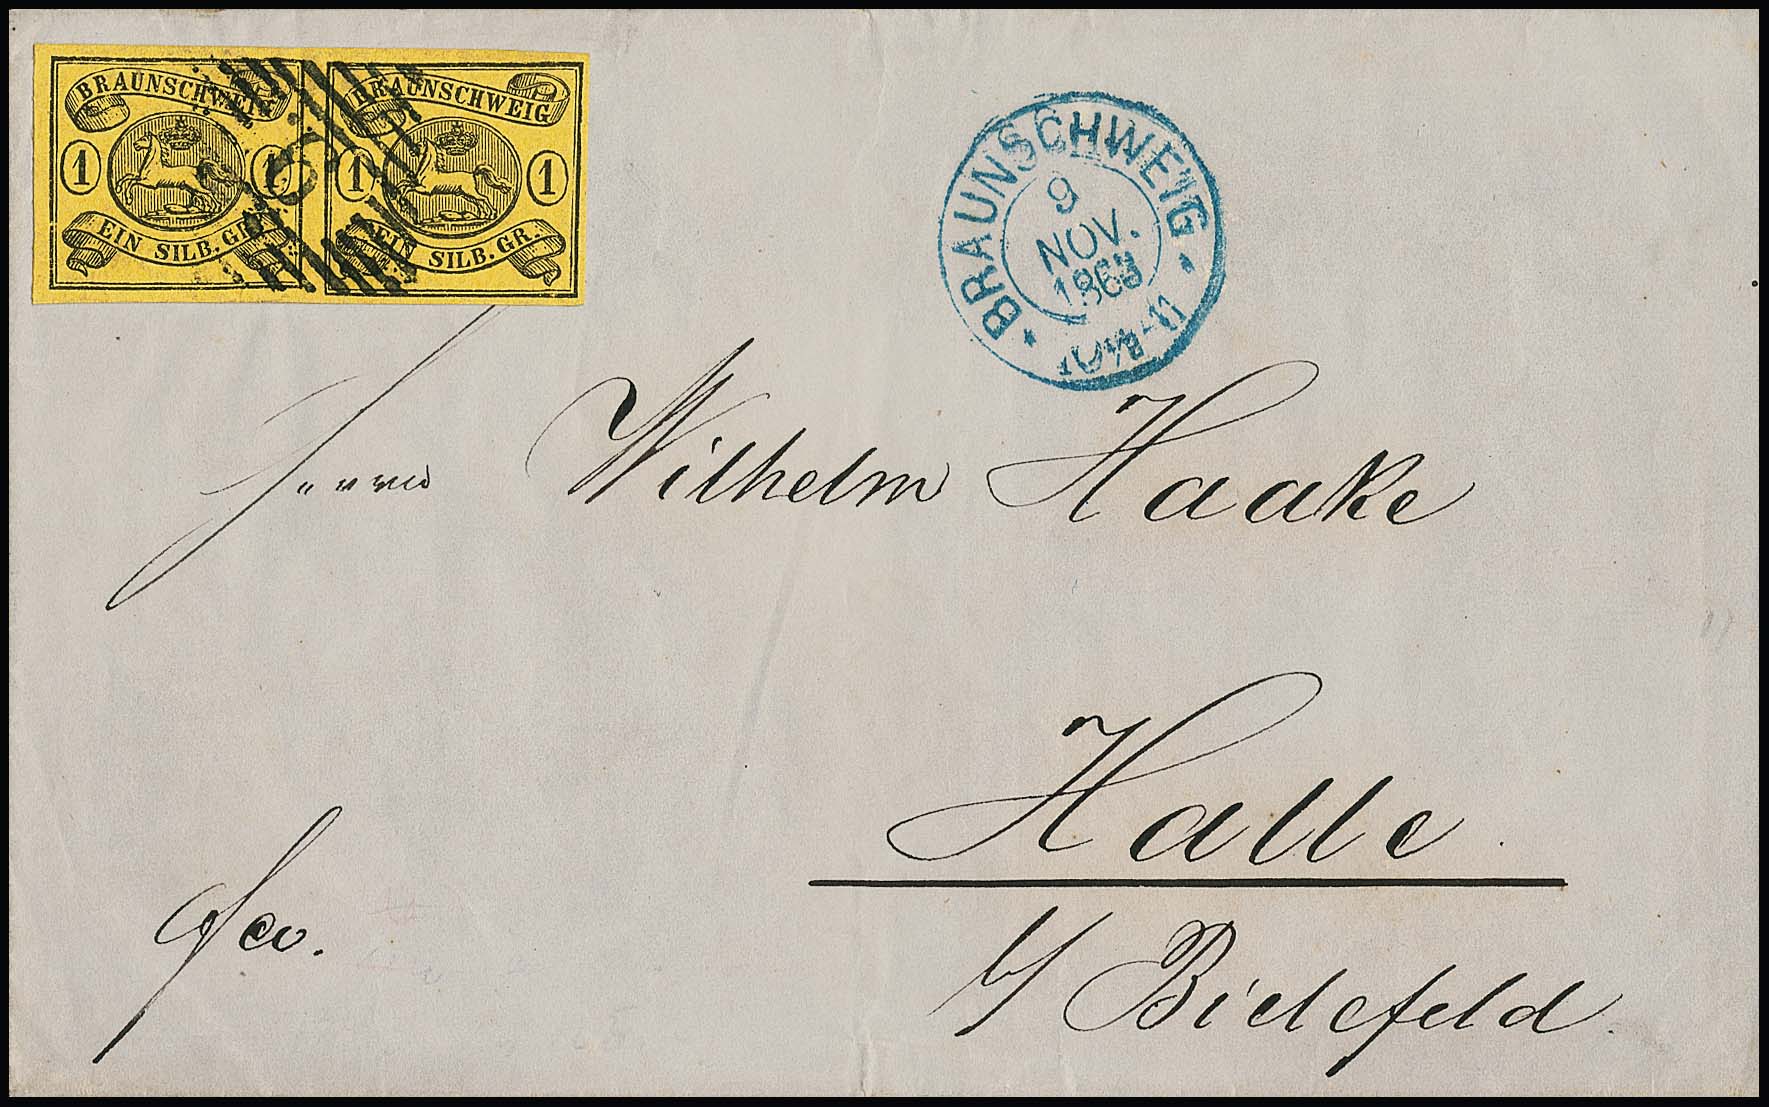 BRAUNSCHWEIG
1 1
EIN SILB. GR.
BRAUNSCHWEIG
1 1
EIN SILB. GR.
BRAUNSCHWEIG
9
NOV.
1863
Herrn Wilhelm Haake
Halle
fco.
b/ Bielefeld.